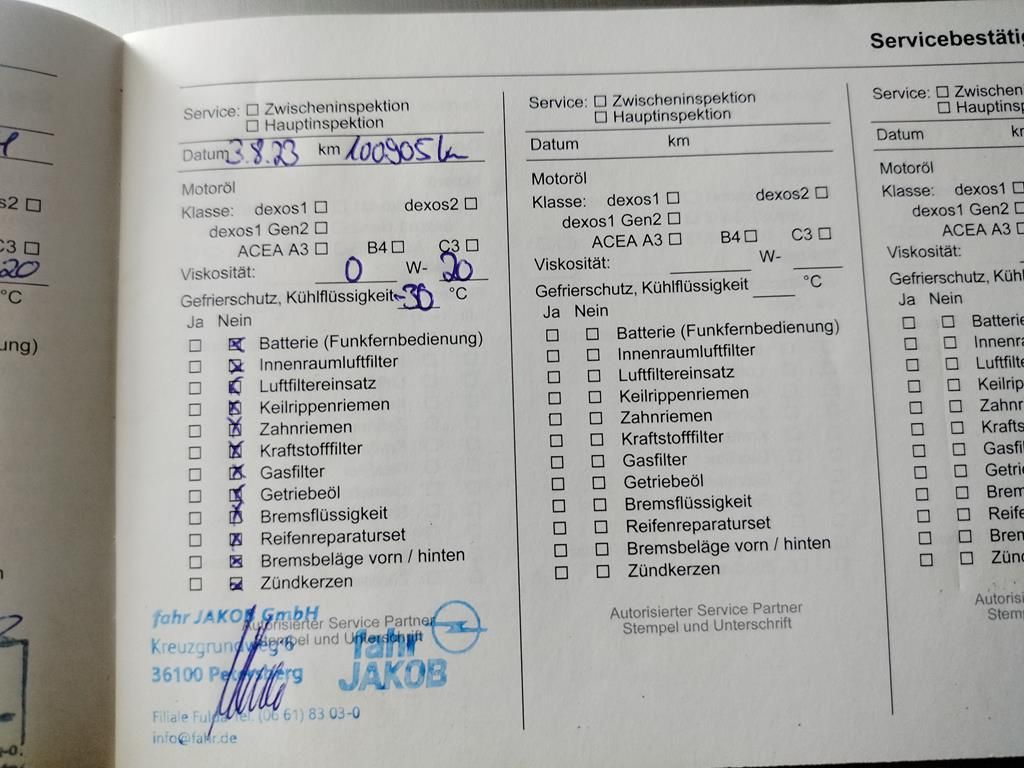 Servicebestätig
Service: ☐ Zwischeninspektion
☐ Hauptinspektion
Datum 3.8.23 km 100905 km
Motoröl
Klasse: dexos1 ☐ dexos2 ☐
dexos1 Gen2 ☐
ACEA A3 ☐ B4 ☐ C3 ☐
Viskosität: 0 W- 20
Gefrierschutz, Kühlflüssigkeit -30 °C
Ja Nein
☐ ☒ Batterie (Funkfernbedienung)
☐ ☒ Innenraumluftfilter
☐ ☒ Luftfiltereinsatz
☐ ☒ Keilrippenriemen
☐ ☒ Zahnriemen
☐ ☒ Kraftstofffilter
☐ ☒ Gasfilter
☐ ☒ Getriebeöl
☐ ☒ Bremsflüssigkeit
☐ ☒ Reifenreparaturset
☐ ☒ Bremsbeläge vorn / hinten
☐ ☒ Zündkerzen
Autorisierter Service Partner
Stempel und Unterschrift
fahr JAKOB GmbH
Kreuzgrundweg 6
36100 Petersberg
Filiale Fulda Tel. (06 61) 83 03-0
info@fahr.de
fahr
JAKOB
Service: ☐ Zwischeninspektion
☐ Hauptinspektion
Datum km
Motoröl
Klasse: dexos1 ☐ dexos2 ☐
dexos1 Gen2 ☐
ACEA A3 ☐ B4 ☐ C3 ☐
Viskosität: W-
Gefrierschutz, Kühlflüssigkeit °C
Ja Nein
☐ ☐ Batterie (Funkfernbedienung)
☐ ☐ Innenraumluftfilter
☐ ☐ Luftfiltereinsatz
☐ ☐ Keilrippenriemen
☐ ☐ Zahnriemen
☐ ☐ Kraftstofffilter
☐ ☐ Gasfilter
☐ ☐ Getriebeöl
☐ ☐ Bremsflüssigkeit
☐ ☐ Reifenreparaturset
☐ ☐ Bremsbeläge vorn / hinten
☐ ☐ Zündkerzen
Autorisierter Service Partner
Stempel und Unterschrift
Service: ☐ Zwischeninsp
☐ Hauptinspek
Datum km
Motoröl
Klasse: dexos1 ☐
dexos1 Gen2 ☐
ACEA A3 ☐
Viskosität:
Gefrierschutz, Kühl
Ja Nein
☐ ☐ Batterie
☐ ☐ Innenra
☐ ☐ Luftfilte
☐ ☐ Keilripp
☐ ☐ Zahnr
☐ ☐ Krafts
☐ ☐ Gasfi
☐ ☐ Getri
☐ ☐ Brem
☐ ☐ Reife
☐ ☐ Bren
☐ ☐ Zünd
Autoris
Stem
s2 ☐
C3 ☐
20
°C
ung)